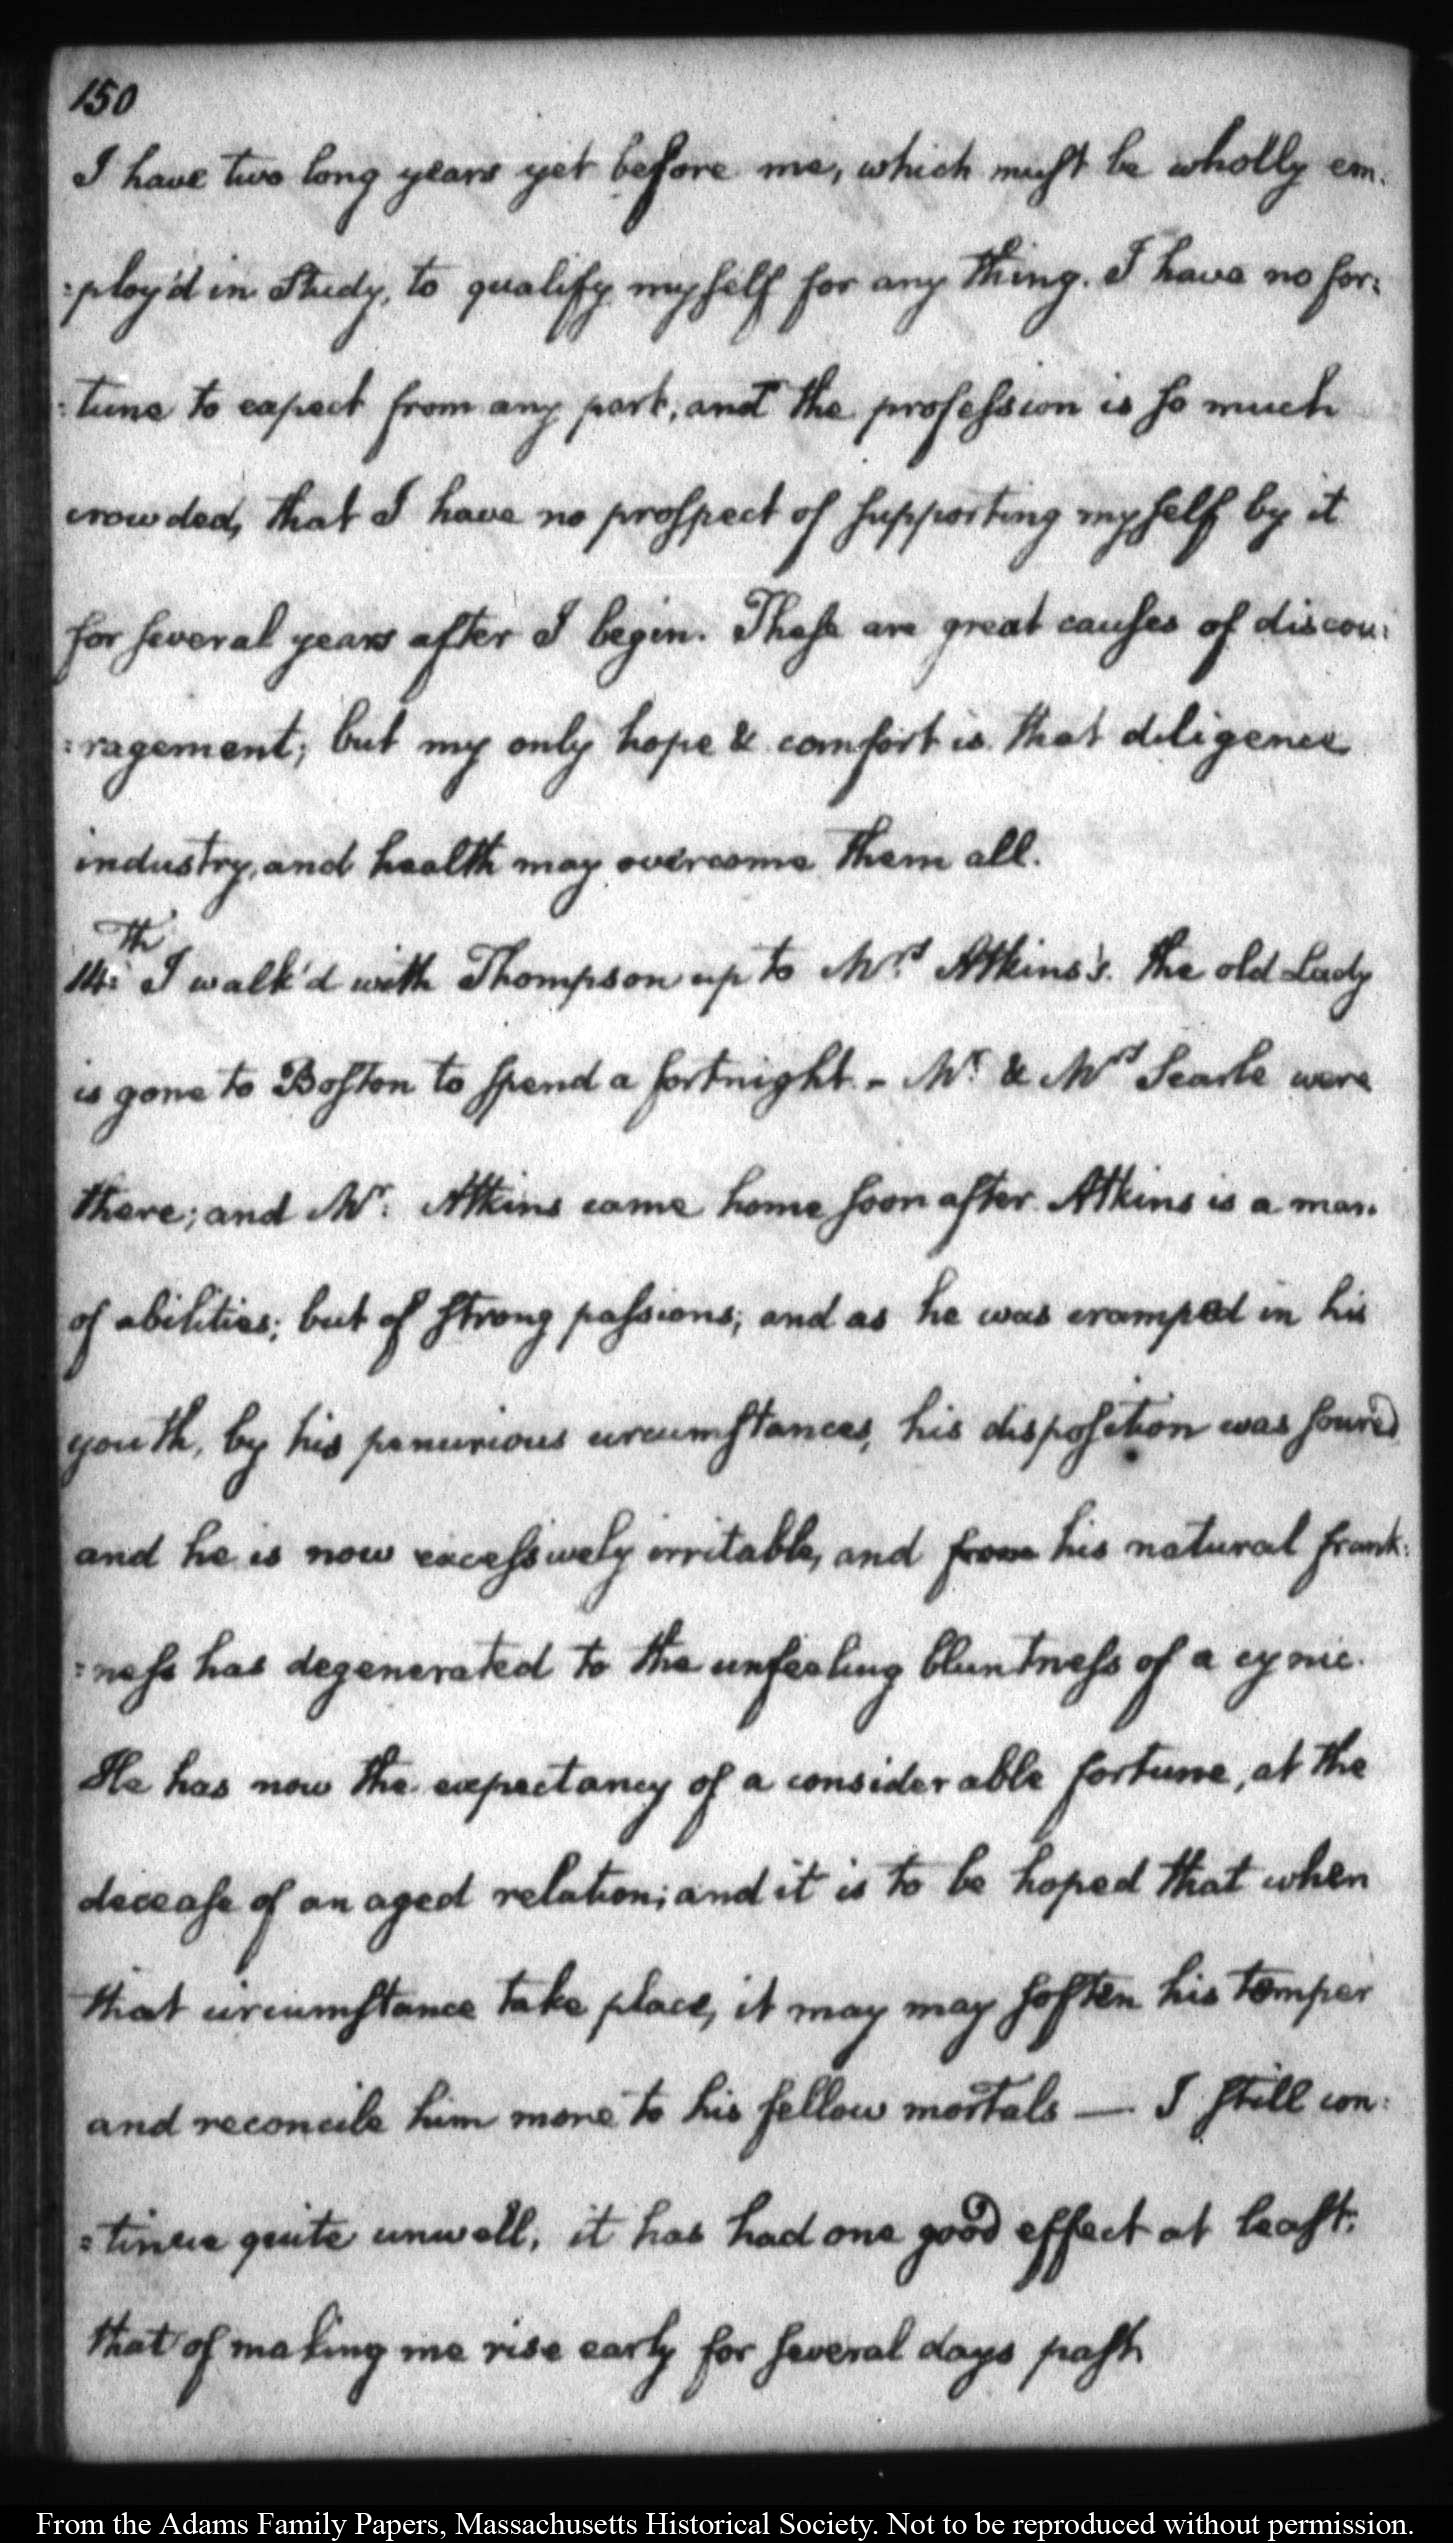 150
I have two long years yet before me, which must be wholly em:
:ploy'd in Study, to qualify myself for any thing. I have no for:
:tune to expect from any part, and the profession is so much
crowded, that I have no prospect of supporting myself by it
for several years after I begin. These are great causes of discou:
:ragement; but my only hope & comfort is that diligence
industry, and health may overcome them all.
14:th I walk'd with Thompson up to Mrs Atkins's. the old Lady
is gone to Boston to spend a fortnight. - Mr & Mrs Searle were
there; and Mr: Atkins came home soon after. Atkins is a man.
of abilities; but of strong passions; and as he was cramped in his
youth, by his penurious circumstances, his disposition was soured
and he is now excessively irritable, and from his natural frank:
:ness has degenerated to the unfeeling bluntness of a cynic.
He has now the expectancy of a considerable fortune, at the
decease of an aged relation; and it is to be hoped that when
that circumstance take place, it may may soften his temper
and reconcile him more to his fellow mortals — I still con:
:tinue quite unwell, it has had one good effect at least;
that of making me rise early for several days past.
From the Adams Family Papers, Massachusetts Historical Society. Not to be reproduced without permission.